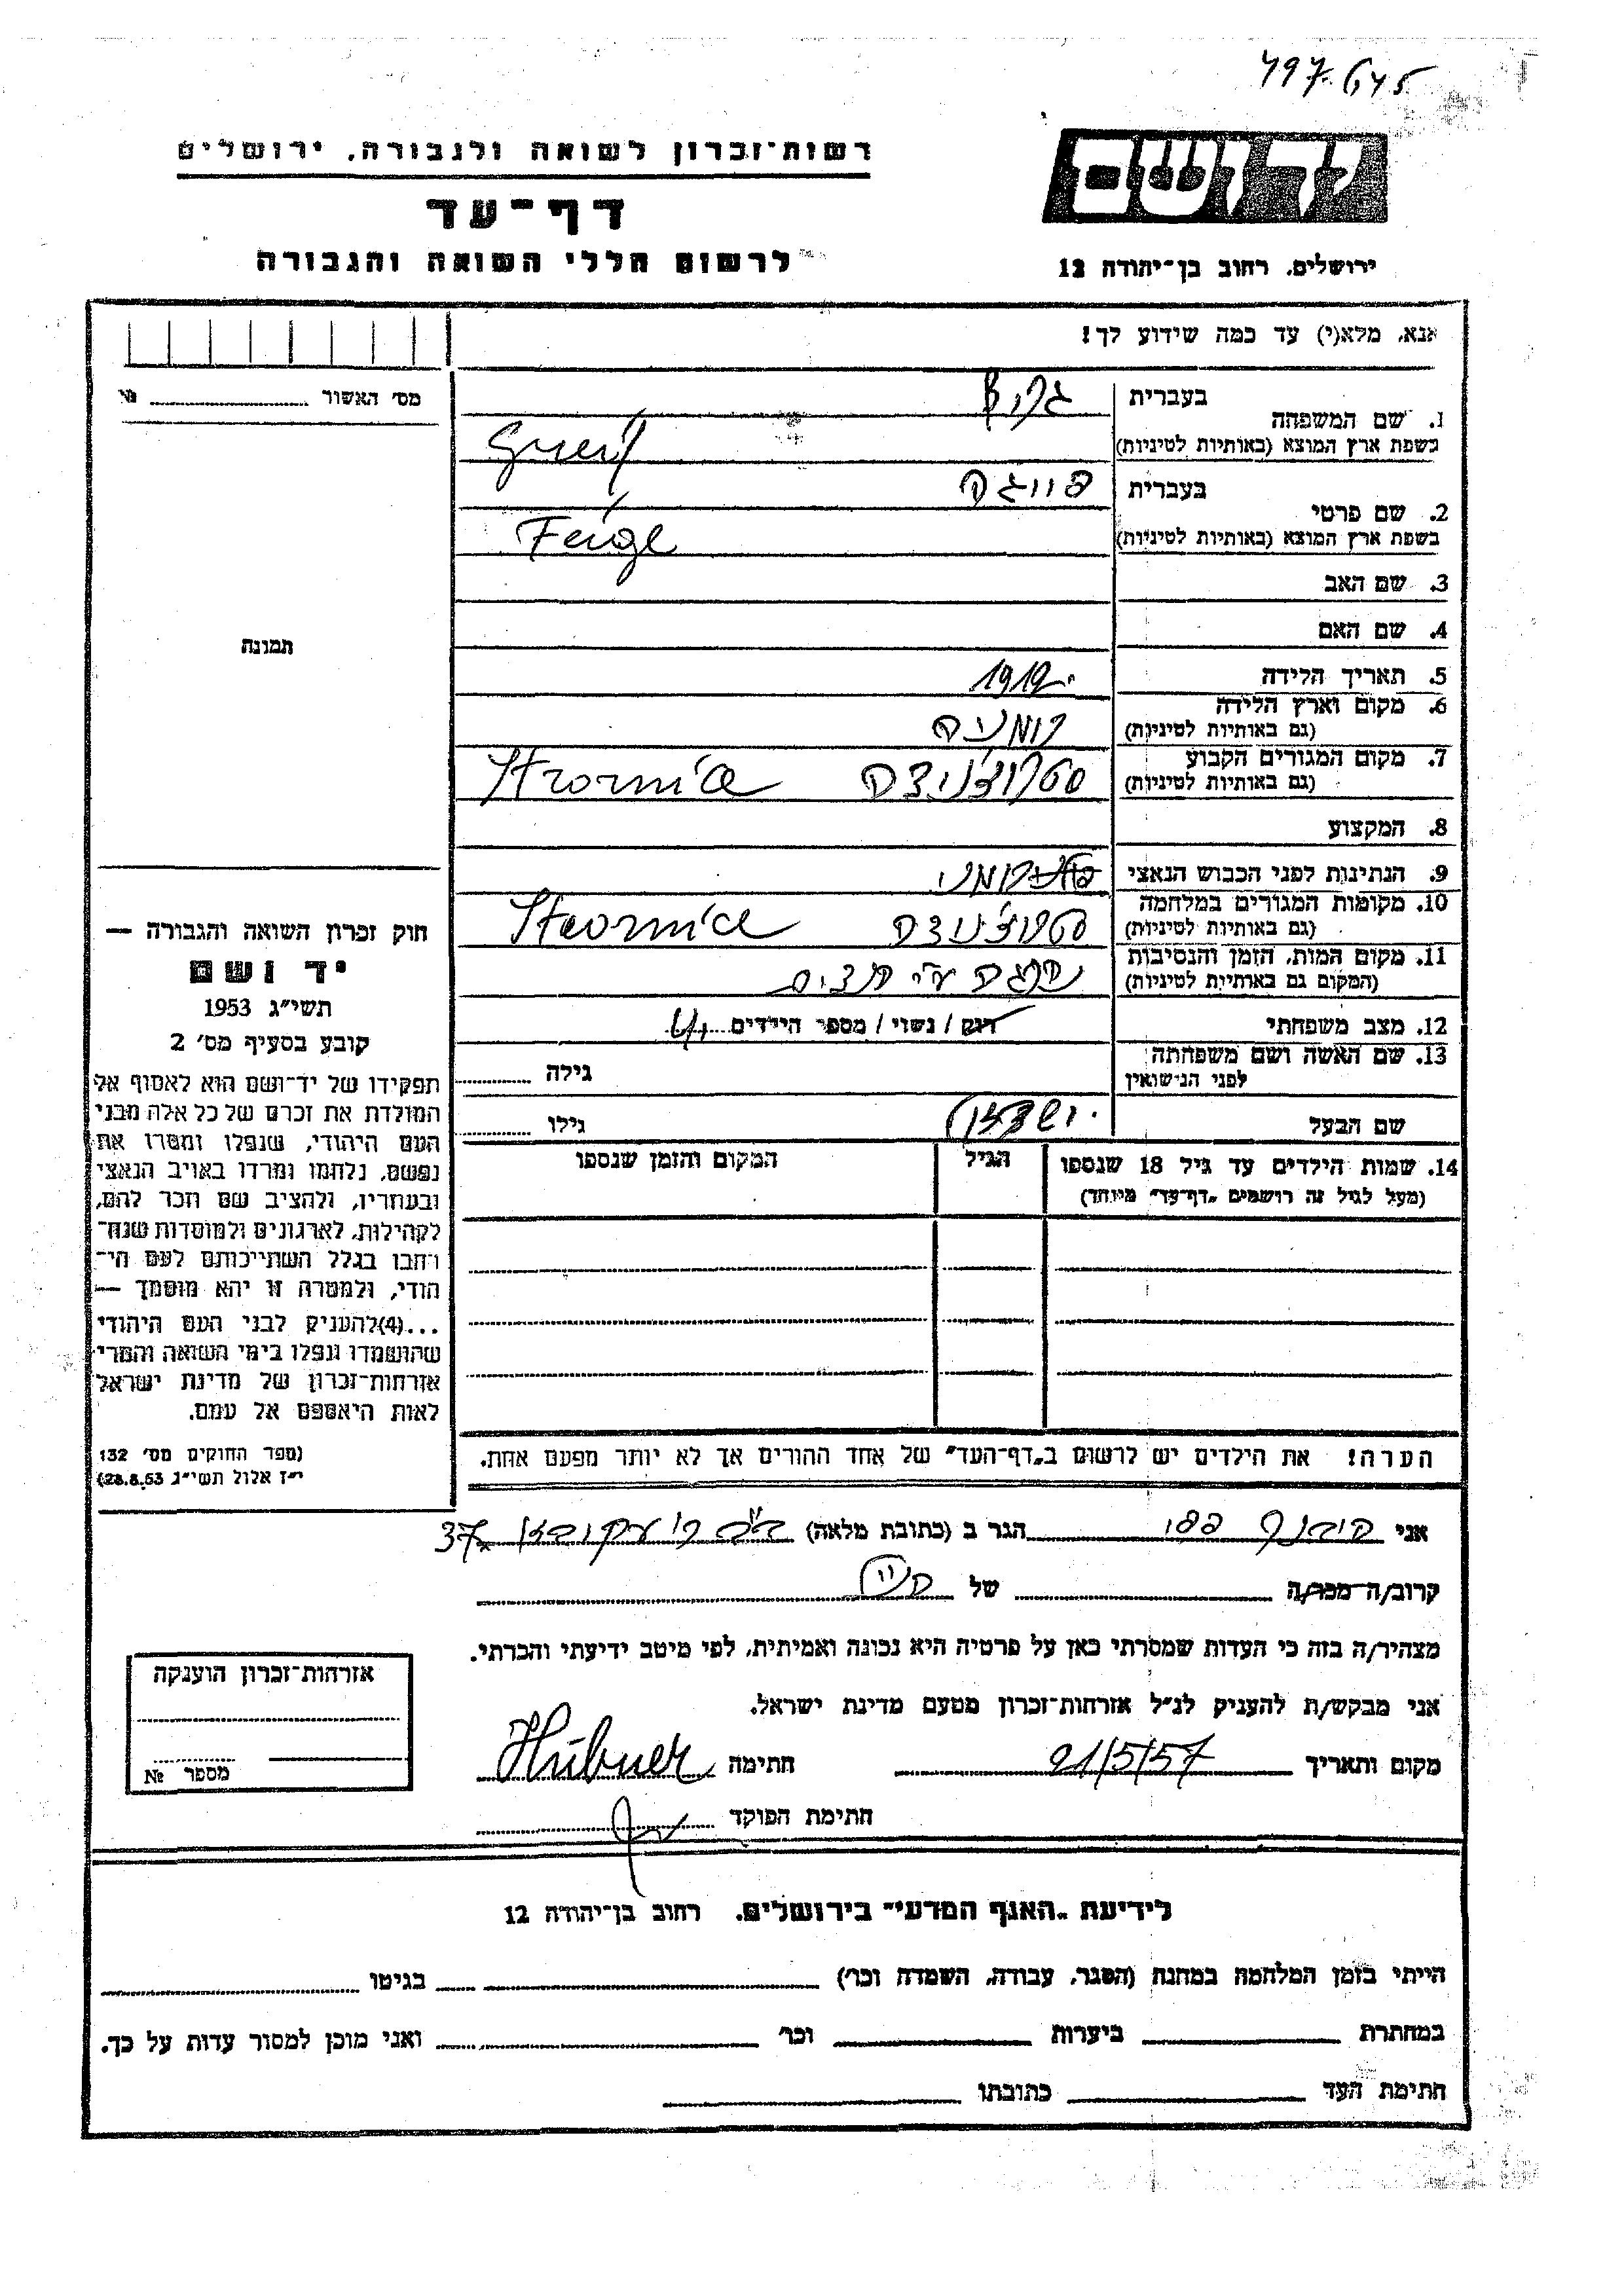 497.645
רשות-זכרון לשואה ולגבורה, ירושלים
דף-עד
לרשום חללי השואה והגבורה
ידושם
ירושלים, רחוב בן-יהודה 12
אנא, מלא(י) עד כמה שידוע לך!
מס' האשור №
1. שם המשפחה
בעברית גרייף
בשפת ארץ המוצא (באותיות לטיניות) Greif
2. שם פרטי
בעברית פייגה
בשפת ארץ המוצא (באותיות לטיניות) Feige
3. שם האב
4. שם האם
תמונה
5. תאריך הלידה 1919
6. מקום וארץ הלידה רומניה
(גם באותיות לטיניות)
7. מקום המגורים הקבוע סטרוז'ניצה
(גם באותיות לטיניות)
8. המקצוע
9. הנתינות לפני הכבוש הנאצי רומני
10. מקומות המגורים במלחמה סטרוז'ניצה
(גם באותיות לטיניות)
11. מקום המות, הזמן והנסיבות נהרגה ע"י נאצים
(המקום גם באותיות לטיניות)
12. מצב משפחתי רווק / נשוי / מספר הילדים
13. שם האשה ושם משפחתה
לפני הנישואין גילה
שם הבעל גילו
14. שמות הילדים עד גיל 18 שנספו
(מעל לגיל זה רושמים „דף-עד" מיוחד)
הגיל
המקום והזמן שנספו
הערה! את הילדים יש לרשום ב„דף-העד" של אחד ההורים אך לא יותר מפעם אחת.
חוק זכרון השואה והגבורה —
יד ושם
תשי"ג 1953
קובע בסעיף מס' 2
תפקידו של יד-ושם הוא לאסוף אל
המולדת את זכרם של כל אלה מבני
העם היהודי, שנפלו ומסרו את
נפשם, נלחמו ומרדו באויב הנאצי
ובעוזריו, ולהציב שם וזכר להם,
לקהילות, לארגונים ולמוסדות שנח-
רבו בגלל השתייכותם לעם הי-
הודי, ולמטרה זו יהא מוסמך —
...(4)להעניק לבני העם היהודי
שהושמדו ונפלו בימי השואה והמרי
אזרחות-זכרון של מדינת ישראל
לאות היאספם אל עמם.
(ספר החוקים מס' 132
י"ז אלול תשי"ג 28.8.53)
אני היבנר פפי הגר ב (כתובת מלאה) 37
קרוב/ה מכר/ה של
מצהיר/ה בזה כי העדות שמסרתי כאן על פרטיה היא נכונה ואמיתית, לפי מיטב ידיעתי והכרתי.
אני מבקש/ת להעניק לנ"ל אזרחות-זכרון מטעם מדינת ישראל.
מקום ותאריך 21/5/57 חתימה Hübner
חתימת הפוקד
אזרחות-זכרון הוענקה
מספר №
לידיעת „האגף המדעי" בירושלים, רחוב בן-יהודה 12
הייתי בזמן המלחמה במחנה (הסגר, עבודה, השמדה וכר') בגיטו
במחתרת ביערות וכר' ואני מוכן למסור עדות על כך.
חתימת העד כתובתו